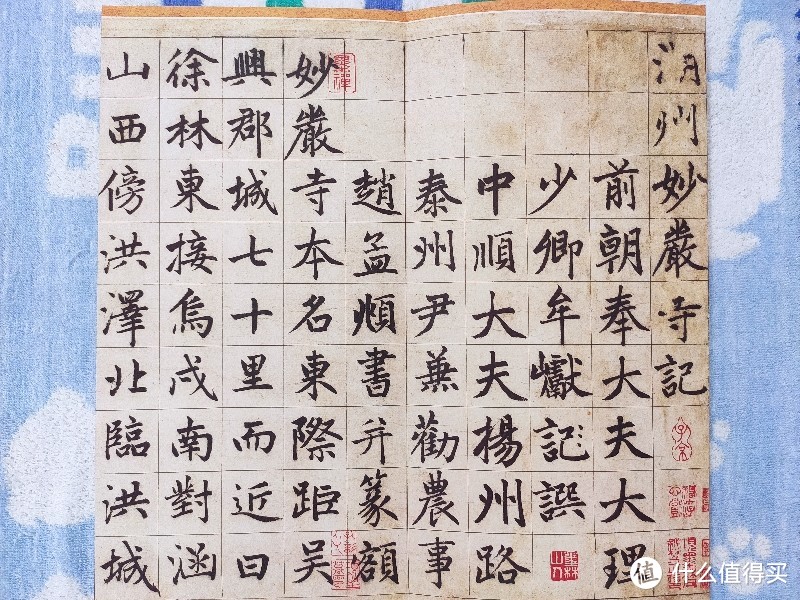 湖州妙嚴寺記
前朝奉大夫大理
少卿牟巘記譔
中順大夫楊州路
泰州尹兼勸農事
趙孟頫書并篆額
妙嚴寺本名東際距吳
興郡城七十里而近曰
徐林東接烏戍南對涵
山西傍洪澤北臨洪城
值 什么值得买